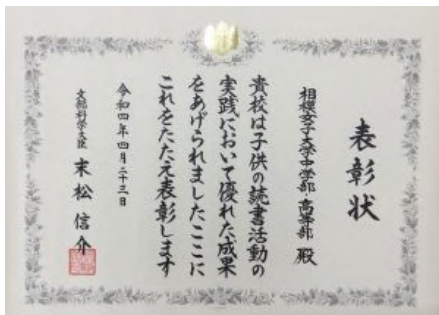 表彰状
相模女子大学中学部・高等部 殿
貴校は子供の読書活動の
実践において優れた成果
をあげられました ここに
これをたたえ表彰します
令和四年四月二十三日
文部科学大臣 末松信介